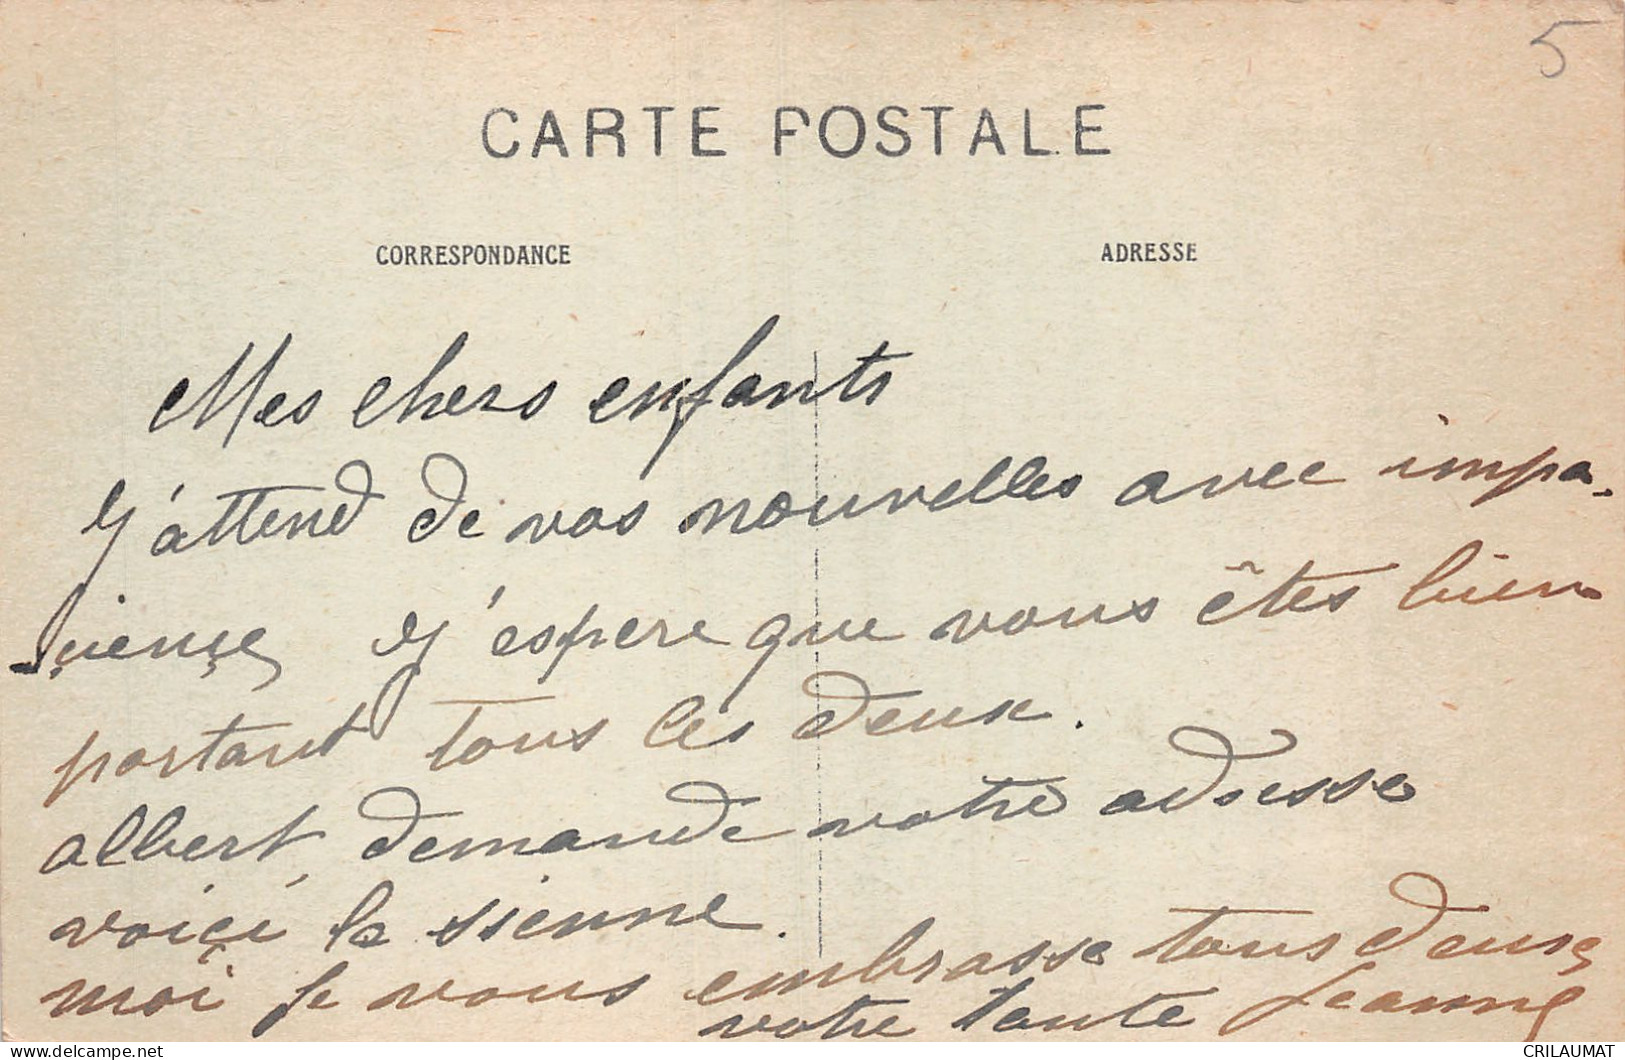 5
CARTE POSTALE
CORRESPONDANCE
ADRESSE
Mes chers enfants
J'attend de vos nouvelles avec impa-
çiençe J'espere que vous êtes bien
portant tous les deux.
albert demande votre adresse
voiçi la sienne.
moi je vous embrasse tous deux
votre tante Jeanne
www.delcampe.net
CRILAUMAT